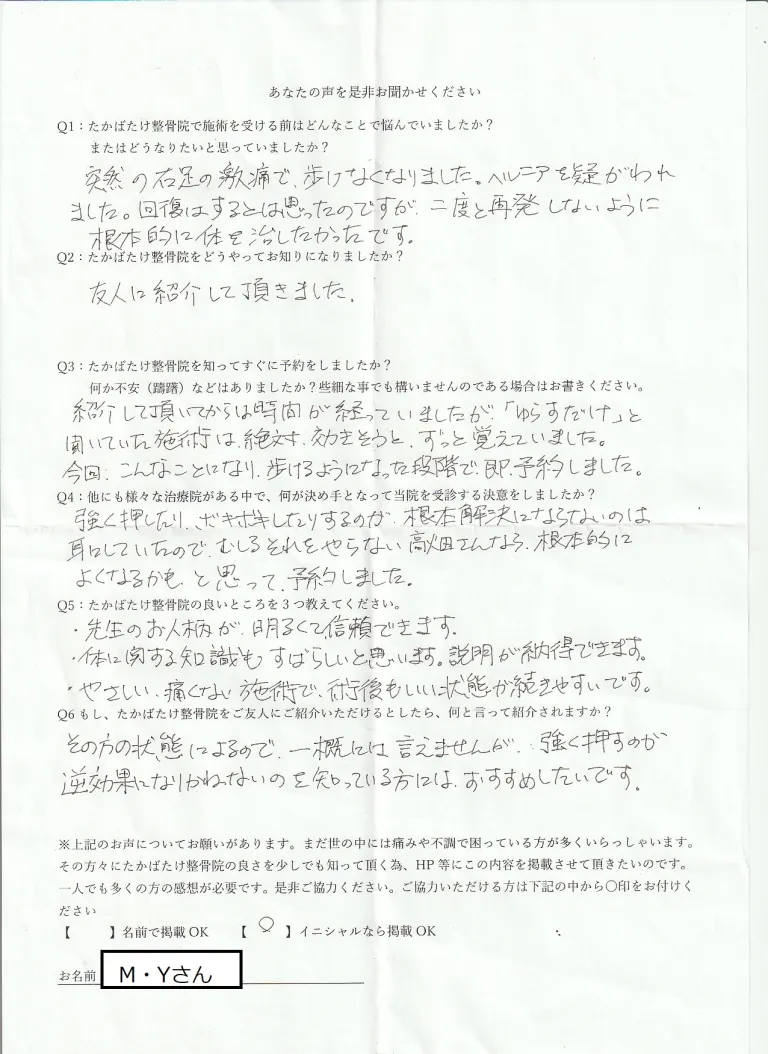 あなたの声を是非お聞かせください
Q1：たかばたけ整骨院で施術を受ける前はどんなことで悩んでいましたか？
またはどうなりたいと思っていましたか？
突然の右足の激痛で、歩けなくなりました。ヘルニアを疑がわれ
ました。回復はするとは思ったのですが、二度と再発しないように
根本的に体を治したかったです。
Q2：たかばたけ整骨院をどうやってお知りになりましたか？
友人に紹介して頂きました。
Q3：たかばたけ整骨院を知ってすぐに予約をしましたか？
何か不安（躊躇）などはありましたか？些細な事でも構いませんのである場合はお書きください。
紹介して頂いてからは時間が経っていましたが、「ゆらすだけ」と
聞いていた施術は、絶対、効きそうと、ずっと覚えていました。
今回、こんなことになり、歩けるようになった段階で、即、予約しました。
Q4：他にも様々な治療院がある中で、何が決め手となって当院を受診する決意をしましたか？
強く押したり、ボキボキしたりするのが、根本解決にならないのは
耳にしていたので、むしろそれをやらない高畑さんなら、根本的に
よくなるかも、と思って、予約しました。
Q5：たかばたけ整骨院の良いところを３つ教えてください。
・先生のお人柄が、明るくて信頼できます。
・体に関する知識もすばらしいと思います。説明が納得できます。
・やさしい、痛くない施術で、術後もいい状態が続きやすいです。
Q6 もし、たかばたけ整骨院をご友人にご紹介いただけるとしたら、何と言って紹介されますか？
その方の状態によるので、一概には言えませんが、強く押すのが
逆効果になりかねないのを知っている方には、おすすめしたいです。
※上記のお声についてお願いがあります。まだ世の中には痛みや不調で困っている方が多くいらっしゃいます。
その方々にたかばたけ整骨院の良さを少しでも知って頂く為、HP 等にこの内容を掲載させて頂きたいのです。
一人でも多くの方の感想が必要です。是非ご協力ください。ご協力いただける方は下記の中から〇印をお付けく
ださい
【　　】名前で掲載 OK　　【 〇 】イニシャルなら掲載 OK
お名前 M・Yさん